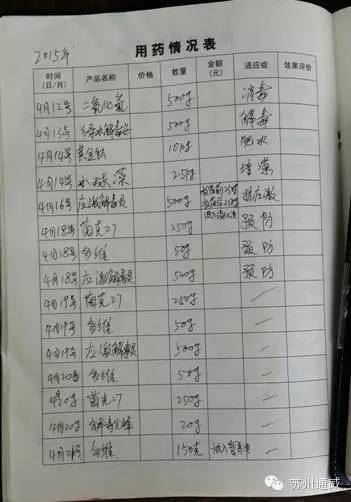 2015年
用药情况表
时间(日/月) 产品名称 价格 数量 金额(元) 适应症 效果评价
4月12号 二氧化氯 500g 消毒
4月13号 绿水解毒安 500g 解毒
4月14号 黄金钛 10g 肥水
4月14号 小球藻 2.5g 培藻
4月16号 应激解毒灵 500g 抗应激
4月18号 菌克27 250g 预防
4月18号 多维 50g 预防
4月18号 应激解毒灵 500g 预防
4月19号 菌克27 250g
4月19号 多维 50g
4月19号 应激解毒灵 500g
4月20号 多维 50g
4月20号 菌克27 250g
4月20号 20g
4月21号 150克 放入
苏州通威